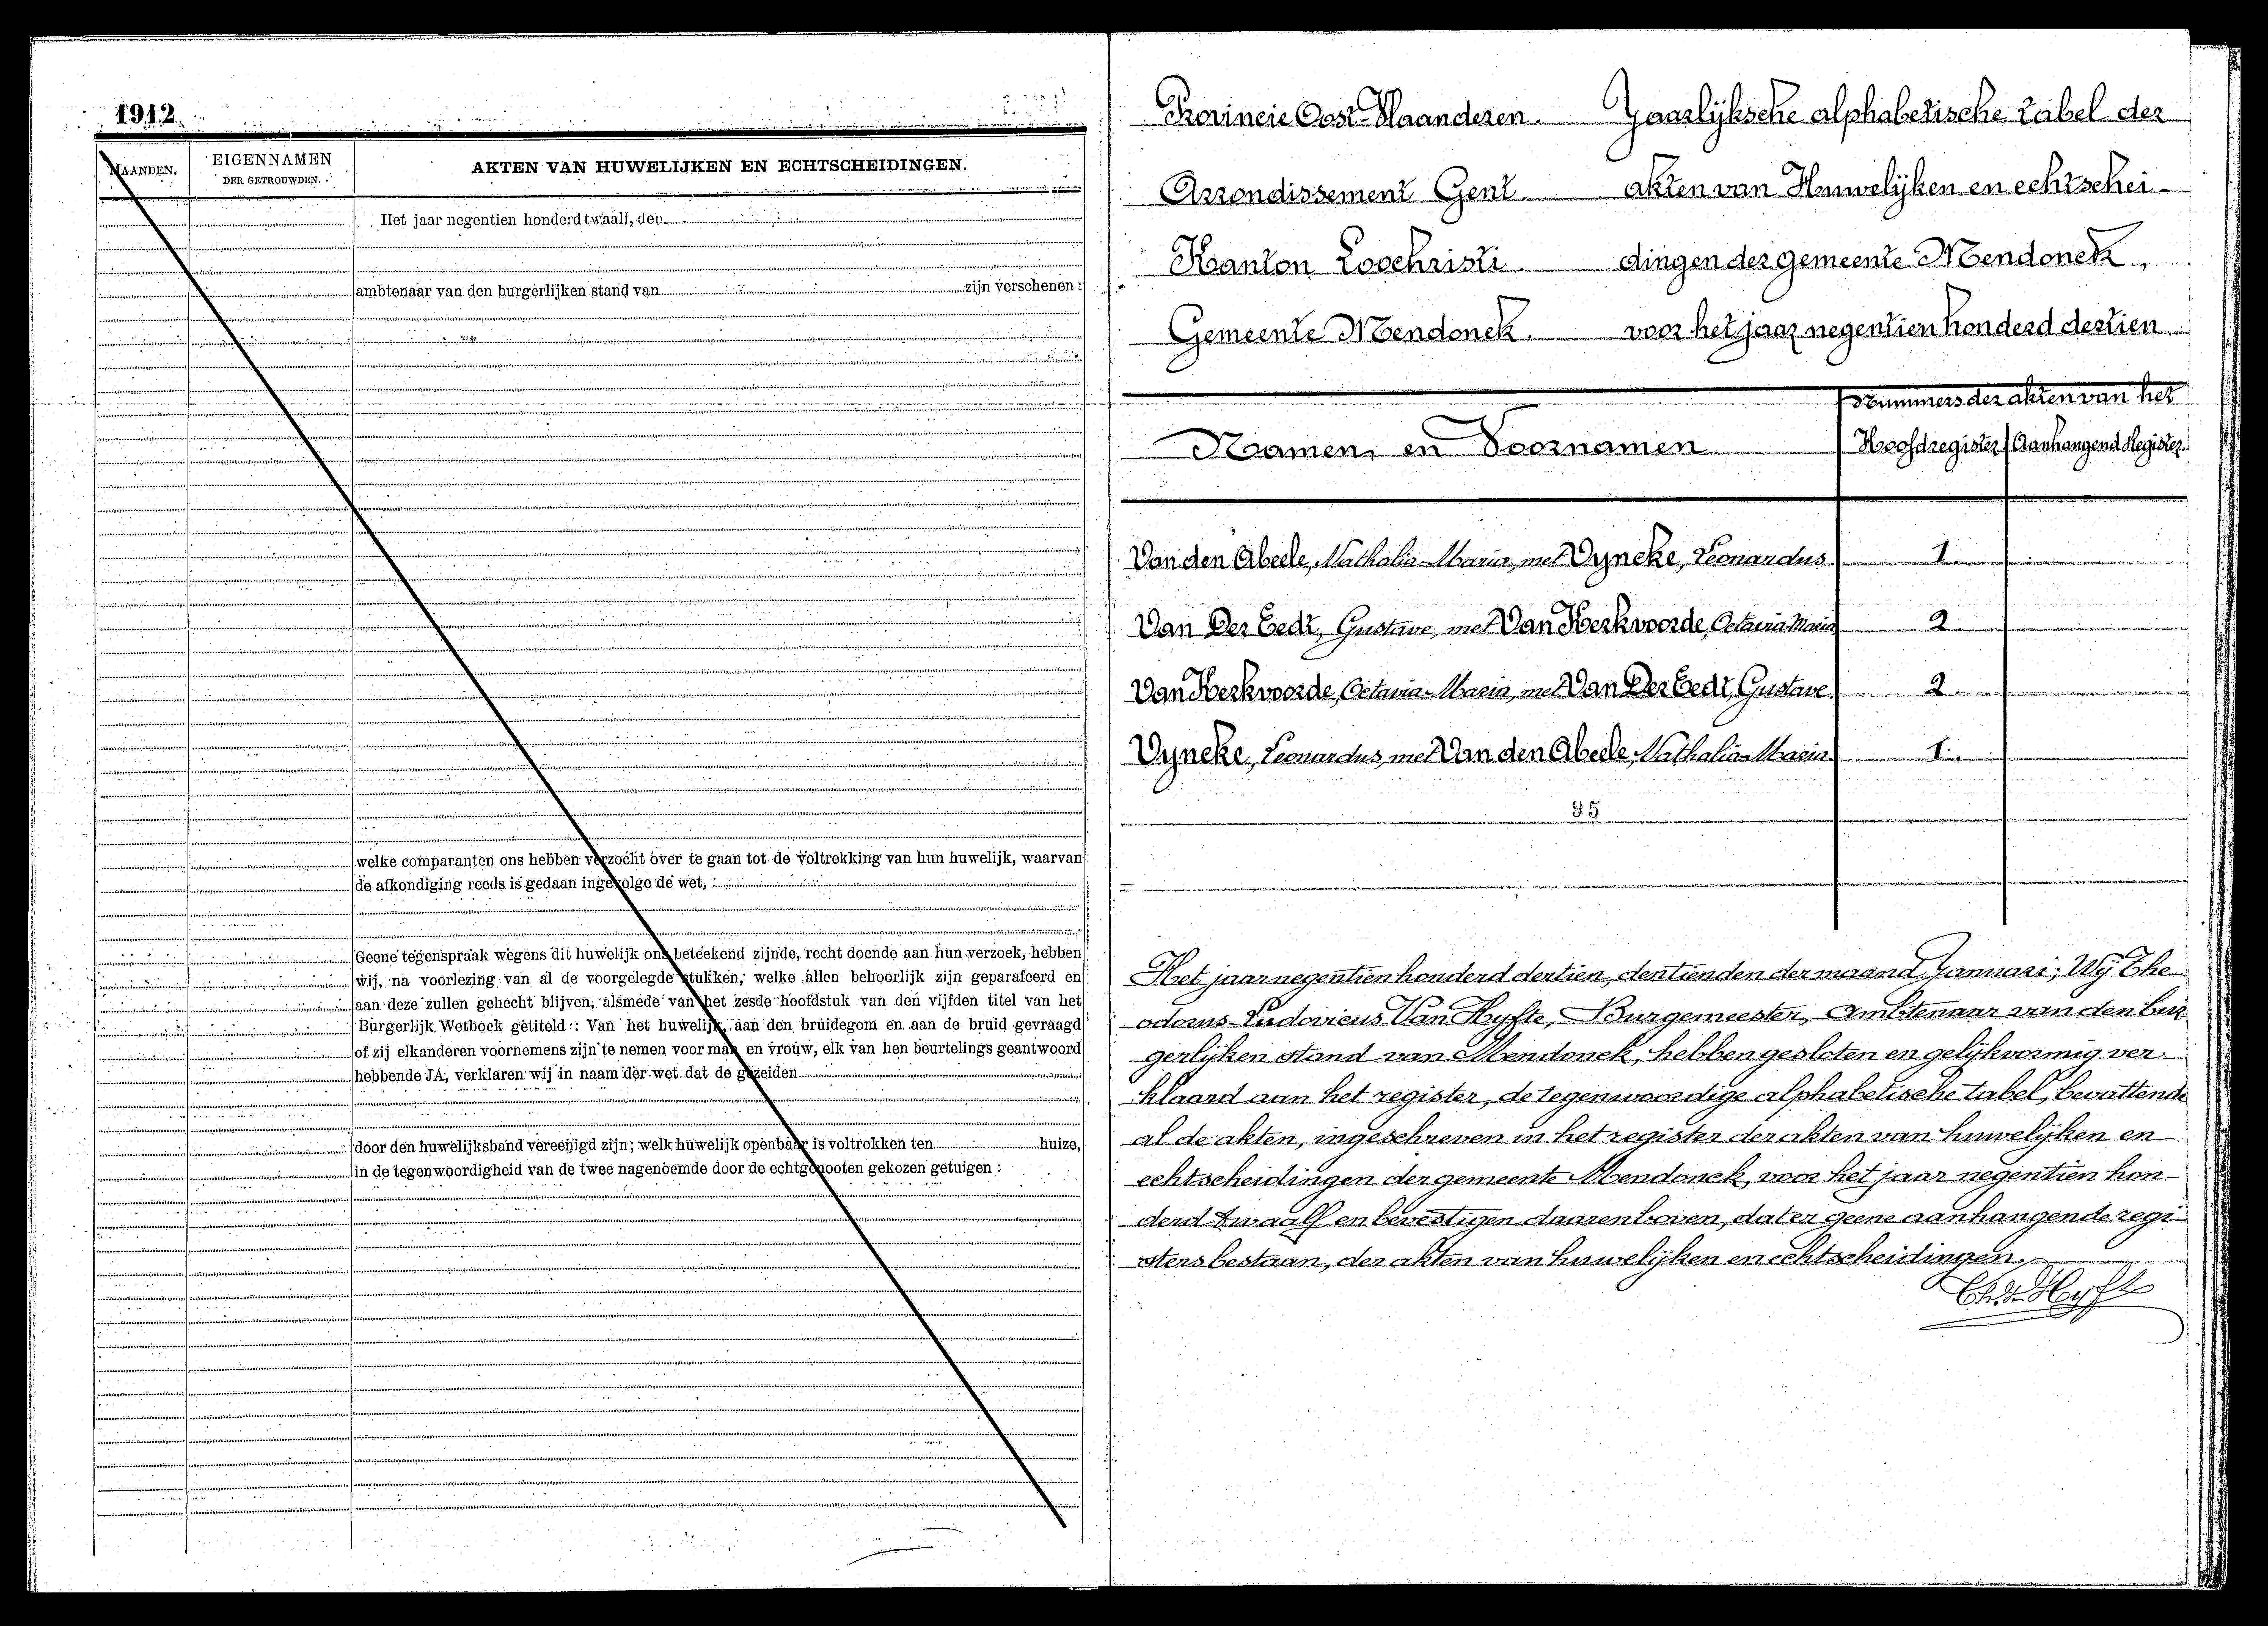 1912.
MAANDEN.
EIGENNAMEN
DER GETROUWDEN.
AKTEN VAN HUWELIJKEN EN ECHTSCHEIDINGEN.
Het jaar negentien honderd twaalf, den
ambtenaar van den burgerlijken stand van zijn verschenen :
welke comparanten ons hebben verzocht over te gaan tot de voltrekking van hun huwelijk, waarvan
de afkondiging reeds is gedaan ingevolge de wet,
Geene tegenspraak wegens dit huwelijk ons beteekend zijnde, recht doende aan hun verzoek, hebben
wij, na voorlezing van al de voorgelegde stukken, welke allen behoorlijk zijn geparafeerd en
aan deze zullen gehecht blijven, alsmede van het zesde hoofdstuk van den vijfden titel van het
Burgerlijk Wetboek getiteld : Van het huwelijk, aan den bruidegom en aan de bruid gevraagd
of zij elkanderen voornemens zijn te nemen voor man en vrouw, elk van hen beurtelings geantwoord
hebbende JA, verklaren wij in naam der wet dat de gezeiden
door den huwelijksband vereenigd zijn; welk huwelijk openbaar is voltrokken ten huize,
in de tegenwoordigheid van de twee nagenoemde door de echtgenooten gekozen getuigen :
Provincie Oost-Vlaanderen. Jaarlijksche alphabetische tabel der
Arrondissement Gent. akten van Huwelijken en echtschei-
Kanton Loochristi. dingen der gemeente Mendonck,
Gemeente Mendonck. voor het jaar negentien honderd dertien
Nummers der akten van het
Naamen en Voornamen Hoofdregister Aanhangend Register
Van den Abeele, Nathalia-Maria, met Vyncke, Leonardus 1.
Van Der Eedt, Gustave, met Van Kerkvoorde, Octavia Maria 2
Van Kerkvoorde, Octavia-Maria, met Van Der Eedt, Gustave. 2
Vyncke, Leonardus, met Van den Abeele, Nathalia-Maria. 1.
Het jaar negentien honderd dertien, den tienden der maand Januari; Wij The-
odorus-Ludovicus Van Hyfte, Burgemeester, Ambtenaar van den bur-
gerlijken stand van Mendonck, hebben gesloten en gelijkvormig ver-
klaard aan het register, de tegenwoordige alphabetische tabel, bevattende
al de akten, ingeschreven in het register der akten van huwelijken en
echtscheidingen der gemeente Mendonck, voor het jaar negentien hon-
derd twaalf en bevestigen daarenboven, dat er geene aanhangende regi-
sters bestaan, der akten van huwelijken en echtscheidingen.